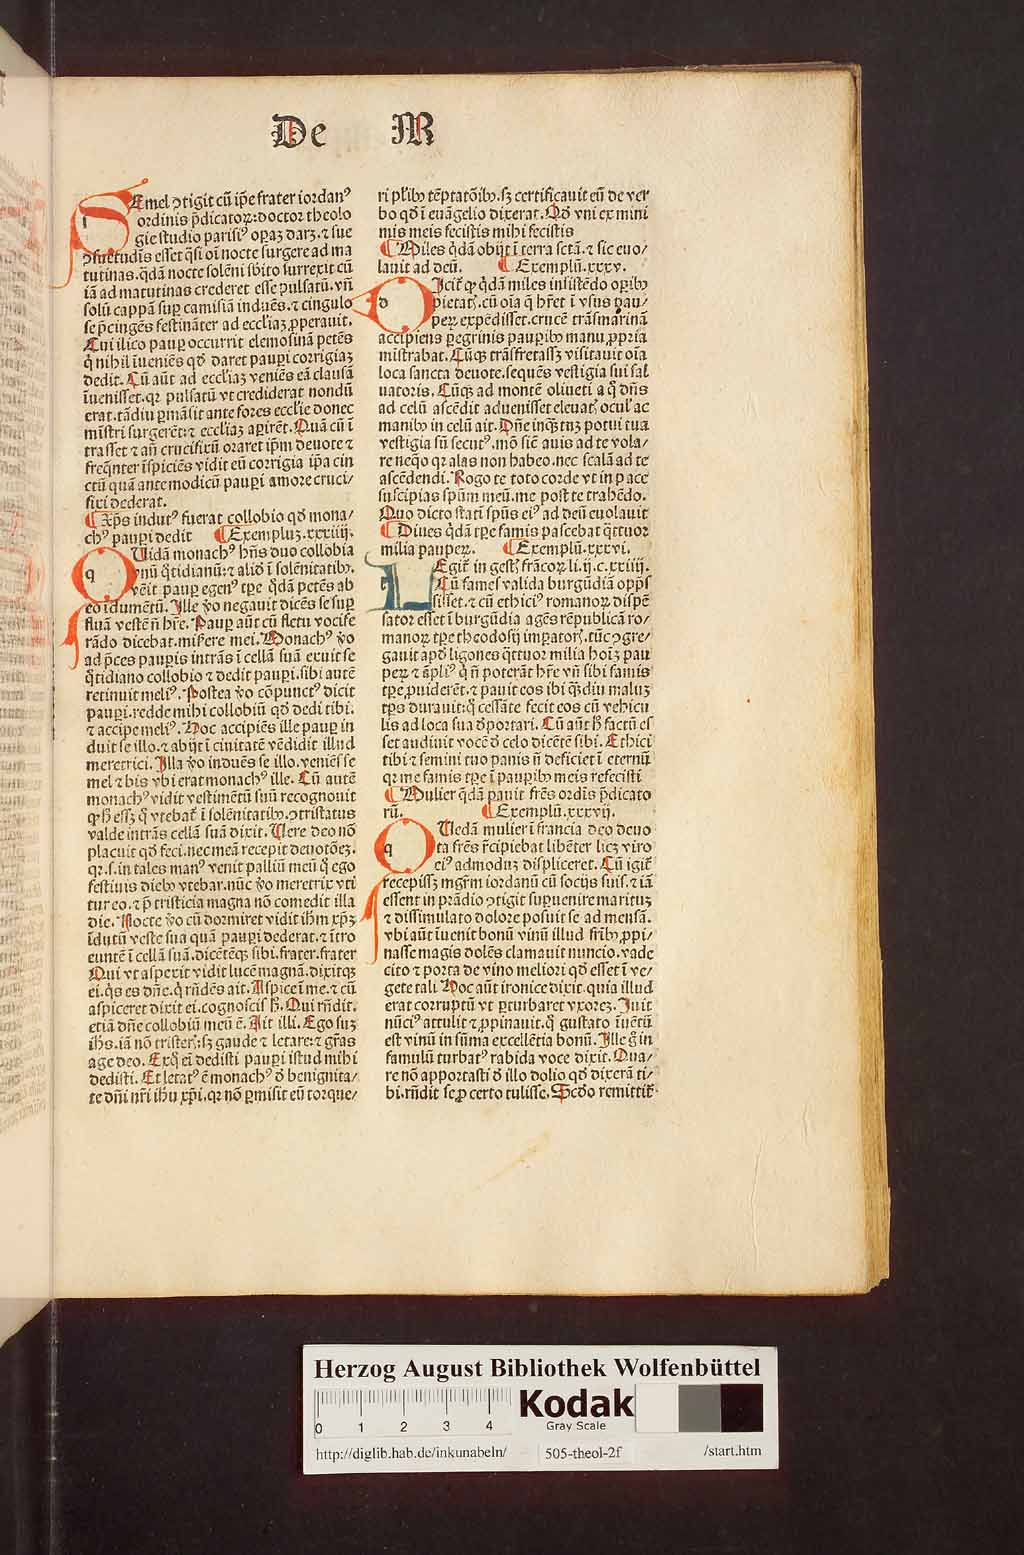 De M
SEmel ꝯtigit cū ip̄e frater iordanꝰ
ordinis p̄dicatoꝝ: doctor theolo
gie studio parisiꝰ oꝑaꝫ darꝫ. ⁊ sue
ꝯsuetudīs esset qͥsi oī nocte surgere ad ma
tutinas. qͥdā nocte solēni sb̄ito surrexit cū
iā ad matutinas crederet esse pulsatū. vn̄
solū cappā suꝑ camisiā induēs. ⁊ cingulo
se p̄cingēs festināter ad eccl̓iaꝫ ꝓperauit.
Cui ilico pauꝑ occurrit elemosinā petēs
qͥ nihil īueniēs qd̓ daret pauꝑi corrigiaꝫ
dedit. Cū aūt ad eccl̓iaꝫ veniēs eā clausā
īuenisset. qꝛ pulsatū vt crediderat nondū
erat. tādiu ꝑmāsit ante fores eccl̓ie donec
mīstri surgerēt: ⁊ eccl̓iaꝫ aꝑirēt. Quā cū ī
trasset ⁊ an̄ crucifixū oraret ip̄m deuote ⁊
freqn̄ter īspiciēs vidit eū corrigia ip̄a cin
ctū quā ante modicū pauꝑi amore cruci/
fixi dederat.
¶ Xp̄s indutꝰ fuerat collobio qd̓ mona/
chꝰ pauꝑi dedit ¶ Exempluꝫ .xxxiiij.
QUidā monachꝰ hn̄s duo collobia
vnū qͥtidianū: ⁊ aliō ī solēnitatibꝰ.
vēit pauꝑ egenꝰ tꝑe qͥdā petēs ab
eo īdumētū. Ille v̓o negauit dicēs se suꝑ
fluā vestē nō hr̄e. Pauꝑ aūt cū fletu vocife
rādo dicebat. mis̓ere mei. Monachꝰ v̓o
ad p̄ces pauꝑis intrās ī cellā suā exuit se
qͥtidiano collobio ⁊ dedit pauꝑi. sibi autē
retinuit meliꝰ. Postea v̓o cōpunctꝰ dicit
pauꝑi. redde mihi collobiū qd̓ dedi tibi.
⁊ accipe meliꝰ. Hoc accipiēs ille pauꝑ in
duit se illo. ⁊ abijt ī ciuitatē vēdidit illud
meretrici. Illa v̓o induēs se illo. veniēs se
mel ⁊ bis vbi erat monachꝰ ille. Cū autē
monachꝰ vidit vestimētū suū recognouit
ꝙ h̓ essꝫ qͦ vtebat̄ ī solēnitatibꝰ. ꝯtristatus
valde intrās cellā suā dixit. Uere deo nō
placuit qd̓ feci. nec meā recepit deuotōeꝫ.
qꝛ .s. in tales manꝰ venit palliū meū qͦ ego
festiuis diebꝰ vtebar. nūc v̓o meretrix vti
tur eo. ⁊ p̄ tristicia magna nō comedit illa
die. Nocte v̓o cū dormiret vidit ih̄m xp̄ꝫ
īdutū veste sua quā pauꝑi dederat. ⁊ ītro
euntē ī cellā suā. dicētēqꝫ sibi. frater. frater
Qui vt aspexit vidit lucē magnā. dixitqꝫ
ei. qͥs es dn̄e. qͥ rn̄dēs ait. Aspice ī me. ⁊ cū
aspiceret dixit ei. cognoscis h̓. Qui rn̄dit.
etiā dn̄e collobiū meū ē. Ait illi. Ego suꝫ
ih̄s. iā nō tristeris: sꝫ gaude ⁊ letare: ⁊ gr̄as
age deo. Exqͦ ei dedisti pauꝑi istud mihi
dedisti. Et letatꝰ ē monachꝰ d̓ benignita/
te dn̄i nr̄i ih̄u xp̄i. qꝛ nō ꝑmisit eū torque/
ri pl̓ibꝰ tēptatōibꝰ. sꝫ certificauit eū de ver
bo qd̓ ī euāgelio dixerat. Qd̓ vni ex mini
mis meis fecistis mihi fecistis
¶ Miles qͥdā obijt ī terra sctā. ⁊ sic euo/
lauit ad deū. ¶ Exemplū .xxxv.
DIcit̄ ꝙ qͥdā miles insistēdo oꝑibꝰ
pietatꝭ. cū oīa q̄ hr̄et ī vsus pau/
perꝝ expēdisset. crucē trāsmarinā
accipiens ꝑegrinis pauꝑibꝰ manu ꝓpria
mīstrabat. Cūqꝫ trāsfretassꝫ visitauit oīa
loca sancta deuote. sequēs vestigia sui sal
uatoris. Cūqꝫ ad montē oliueti a qͦ dn̄s
ad celū ascēdit aduenisset eleuatꝭ oculꝭ ac
manibꝰ in celū ait. Dn̄e inqͣꝫ tuꝫ potui tua
vestigia sū secutꝰ. mō sic̄ auis ad te vola/
re neqͦ qꝛ alas non habeo. nec scalā ad te
ascēdendi. Rogo te toto corde vt in pace
suscipias spūm meū. me post te trahēdo.
Quo dicto statī spūs eiꝰ ad deū euolauit
¶ Diues qͥdā tꝑe famis pascebat qͣttuor
milia pauperꝝ. ¶ Exemplū .xxxvi.
LEgit̄ in gestꝭ frācoꝝ li. ij. c. xxiiij.
Cū fames valida burgūdiā opp̄s
sisset. ⁊ cū ethiciꝰ romanoꝝ dispē
sator esset ī burgūdia agēs rēpublicā ro/
manoꝝ tꝑe theodosij imꝑatorꝭ. tūc ꝯgre/
gauit apd̓ ligones qͣttuor milia hoīꝫ pau
perꝝ ⁊ āpliꝰ qͥ nō poterāt hr̄e vn̄ sibi famis
tꝑe ꝓuiderēt. ⁊ pauit eos ibi qͣmdiu maluꝫ
tꝑs durauit: qͦ cessāte fecit eos cū vehicu
lis ad loca sua d̓portari. Cū aūt h̓ factū es
set audiuit vocē d̓ celo dicētē sibi. Ethici
tibi ⁊ semini tuo panis nō deficiet ī eternū
qꝛ me famis tꝑe ī pauꝑibꝰ meis refecisti
¶ Mulier qͣdā pauit frēs ordīs p̄dicato
rū. ¶ Exemplū .xxxvij.
QUedā mulier ī francia deo deuo
ta frēs r̄cipiebat libēter licꝫ viro
eiꝰ admoduꝫ displiceret. Cū igit̄
recepissꝫ mgr̄m iordanū cū socijs suis. ⁊ iā
essent in prādio ꝯtigit suꝑuenire marituꝫ
⁊ dissimulato dolore posuit se ad mensā.
vbi aūt īuenit bonū vinū illud fr̄ibꝰ ꝓpi/
nasse magis dolēs clamauit nuncio. vade
cito ⁊ porta de vino meliori qd̓ esset ī ve/
gete tali. Hoc aūt ironice dixit. quia illud
erat corruptū vt ꝑturbaret vxoreꝫ. Iuit
nūciꝰ attulit ⁊ ꝓpinauit. qͦ gustato īuētū
est vinū in sūma excellētia bonū. Ille gͦ in
famulū turbatꝰ rabida voce dixit. Qua/
re nō apportasti d̓ illo dolio qd̓ dixerā ti/
bi. rn̄dit se ꝓ certo tulisse. Scd̓o remittit̄
Herzog August Bibliothek Wolfenbüttel
0 1 2 3 4
Kodak
Gray Scale
http://diglib.hab.de/inkunabeln/ 505-theol-2f /start.htm